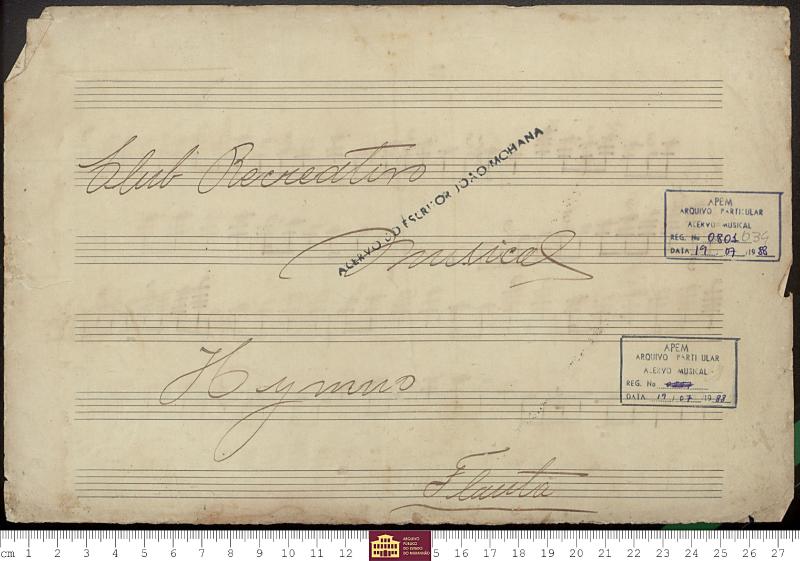 Club Recreativo
Musical
ACERVO DO ESCRITOR JOÃO MOHANA
APEM
ARQUIVO PARTICULAR
ACERVO MUSICAL
REG. No 0801 039
DATA 19 07 1988
Hymno
APEM
ARQUIVO PARTICULAR
ACERVO MUSICAL
REG. No
DATA 19 / 07 / 1988
Flauta
cm 1 2 3 4 5 6 7 8 9 10 11 12 5 16 17 18 19 20 21 22 23 24 25 26 27
ARQUIVO
PÚBLICO
DO ESTADO
DO MARANHÃO